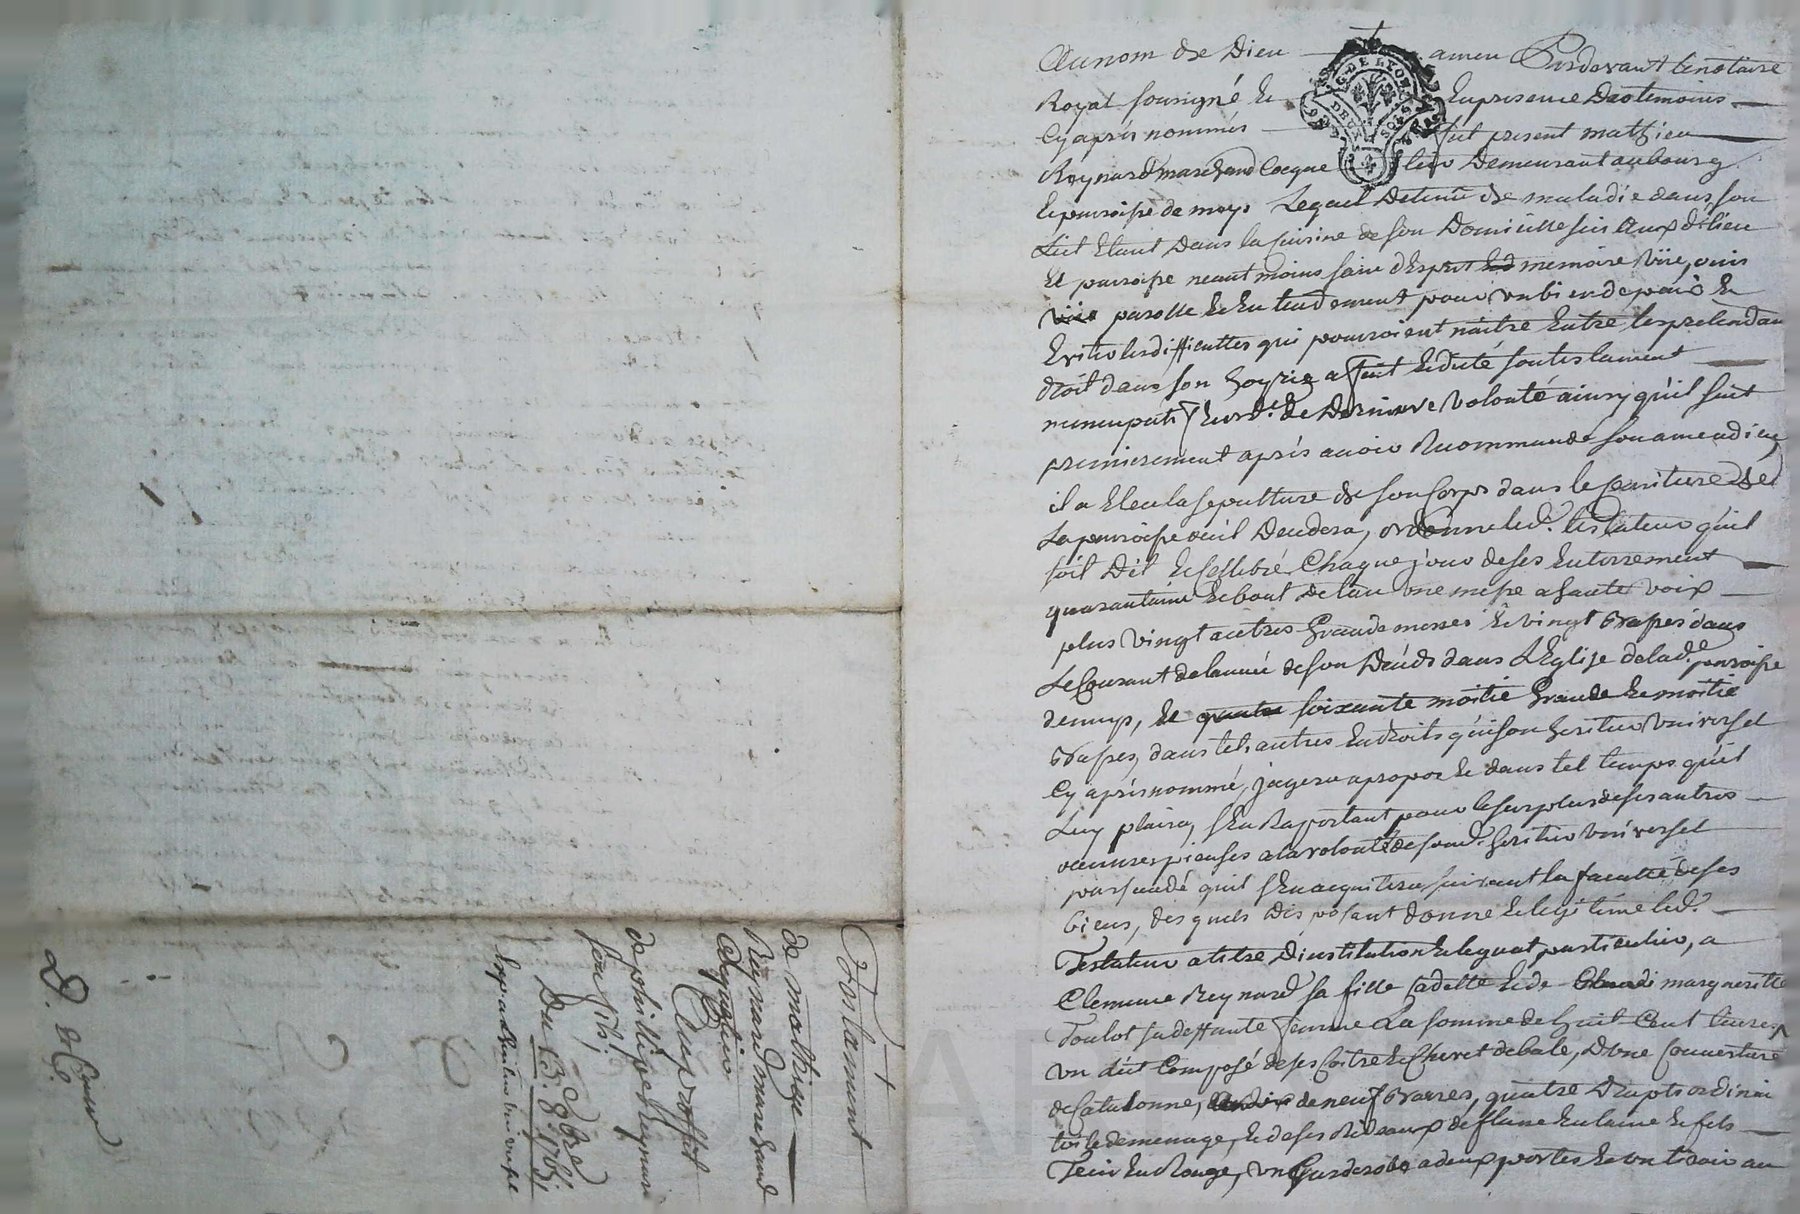 Au nom de Dieu amen Pardevant le notaire
Royal sousigné et en presence des temoins
Cy après nommés fut present mathieu
Reynard marchand demeurant au bourg
et paroisse de mays Lequel detenu de maladie dans son
Lict etant dans la cuisine de son Domicille sur
Et paroisse neantmoins sain d'Esprit memoire
parolle et entendement pour un bien de paix et
Eviter les difficultes qui pourroient naitre entre les pretendant
droit dans son hoyrie a fait et dicté son testament
nuncupatif et ord.e de derniere volonté ainsy qu'il suit
premierement après avoir Recommandé son ame a dieu,
il a Eleu la sepulture de son Corps dans le cemitiere de
La paroisse ou il decedera, ordonne led.t testateur qu'il
soit Dit et cellebré Chaque jour de ses Enterrement
quarantaine et bout de l'an une messe a haute voix
plus vingt autres Grande messes et vingt Basses dans
Le Courant de l'année de son Décés dans L'Eglise de lad.e paroisse
de mays, et soixante moitié Grande et moitié
Basses, dans tels autres Endroits qu'i son heritier Universel
Cy après nommé, jugera apropos et dans tel temps qu'il
Luy plaira, s'en Raportant pour le surplus de ses autres
oeuvres pieuses a la volonté de sond.t heritier Universel
persuadé qu'il s'en acquitera suivant la faculté de ses
biens, des quels disposant donne et legue led.t
Testateur a titre D'institution et legat particulier, a
Clemence Reynard sa fille Cadette et de margueritte
Toulot sa deffunte femme La somme de huit Cent livres,
un dit Composé de ses Coitre et Chevet de bale, D'une Couverture
de Catalonne, de neuf Barres, quatre Drapts ordinai
de menage, et de ses Rideaux de flaine en laine et fils
Teint en Rouge, un Garderobe a deux portes et un tiroir au
Testament
de mathieu
Reynard marchand
Au proffit
de philippe Reynard
son fils,
Du 13. 8bre
1763